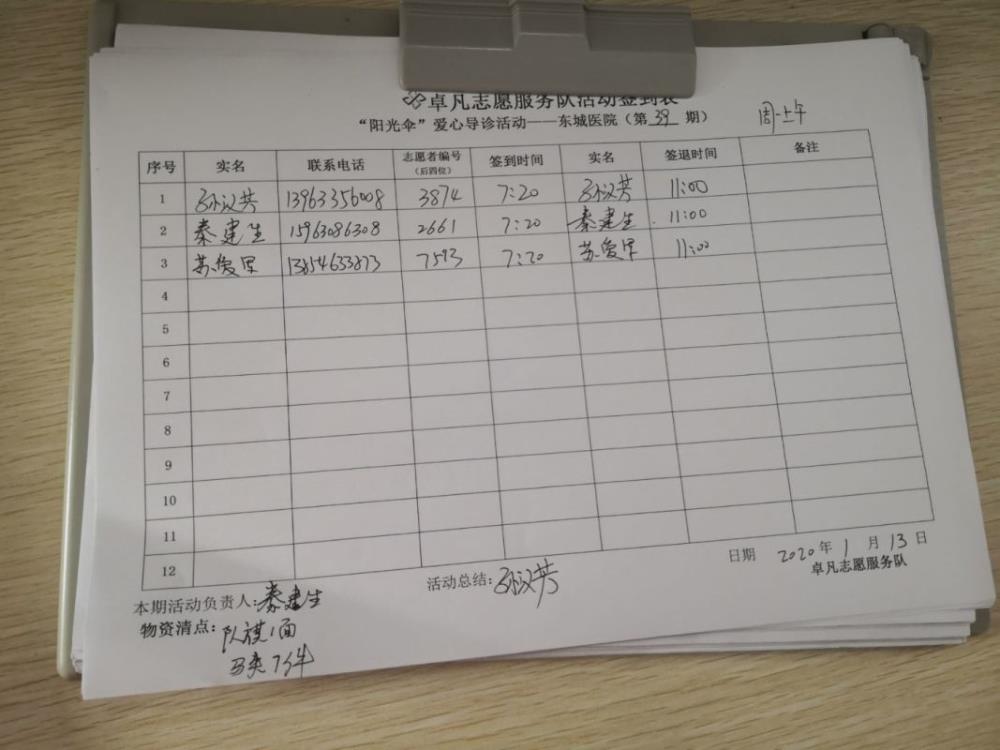 卓凡志愿服务队活动签到表
“阳光伞”爱心导诊活动——东城医院（第 39 期） 周一上午
序号 实名 联系电话 志愿者编号（后四位） 签到时间 实名 签退时间 备注
1 孙汉芳 13963356008 3874 7:20 孙汉芳 11:00
2 秦建生 15963086308 2661 7:20 秦建生 11:00
3 苏俊军 13854633873 7593 7:20 苏俊军 11:00
4
5
6
7
8
9
10
11
12
日期 2020 年 1 月 13 日
卓凡志愿服务队
本期活动负责人：秦建生 活动总结：孙汉芳
物资清点：队旗1面
马夹7件